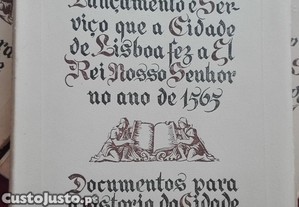 Lançamento e Ser-
viço que a Cidade
de Lisboa fez a El
Rei Nosso Senhor
no ano de 1565
Documentos para
a História da Cidade
CustoJusto.pt